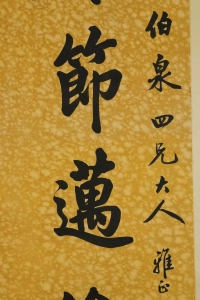 伯泉四兄大人雅正
節邁